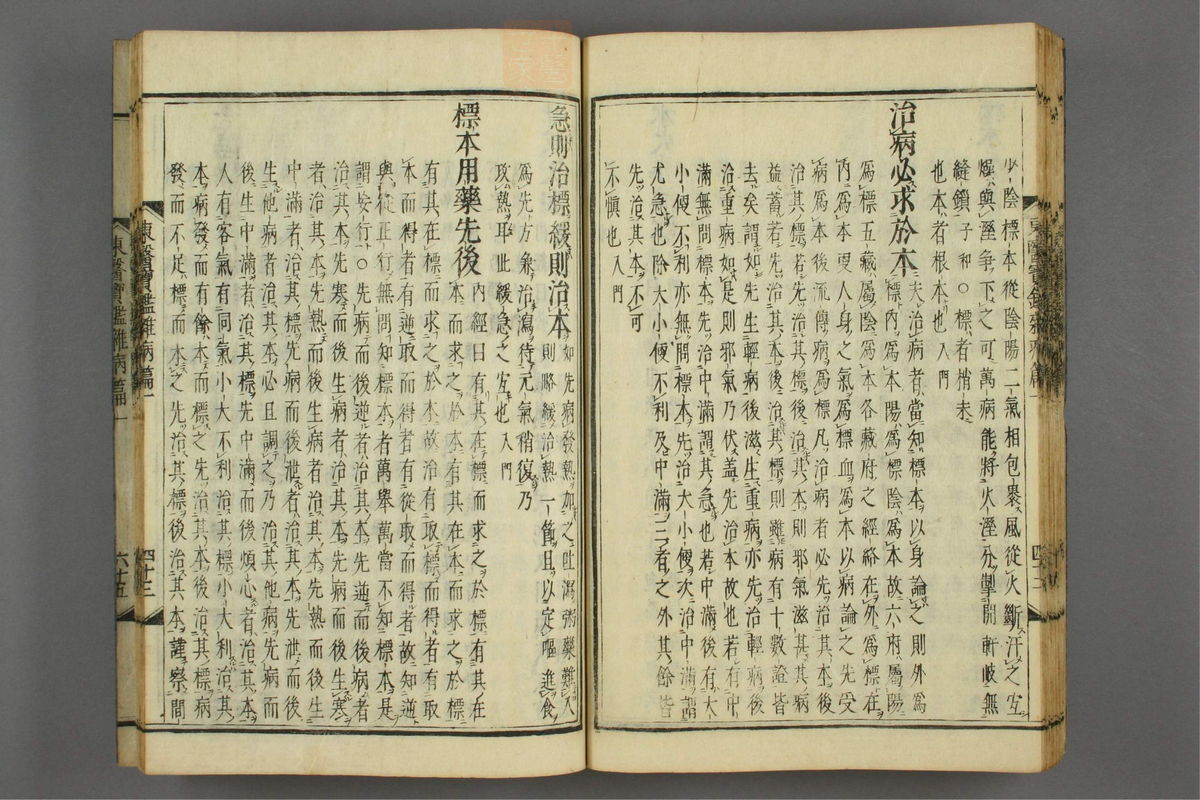 少陰標本從陰陽二氣相包暴風從火斷汗之宜
燥與溼爭下之可萬病能將火溼分掣開軒岐無
縫鎖子和○標者梢末
也本者根本也入門
治病必求於本夫治病者當知標本以身論之則外爲
標內爲本陽爲標陰爲本故六府屬陽
爲標五藏屬陰爲本各藏府之經絡在外爲標在
內爲本更人身之氣爲標血爲本以病論之先受
病爲本後流傳病爲標凡治病者必先治其本後
治其標若先治其標後治其本則邪氣滋甚其病
益蓄若先治其本後治其標則雖病有十數證皆
去矣謂如先生輕病後滋生重病亦先治輕病後
治重病如是則邪氣乃伏盖先治本故也若有中
滿無問標本先治中滿謂其急也若中滿後有大
小便不利亦無問標本先治大小便次治中滿謂
尤急也除大小便不利及中滿三者之外其餘皆
先治其本不可
不愼也入門
急則治標緩則治本如先病發熱加之吐瀉粥藥難入
則略緩治熱一節且以定嘔進食
爲先方兼治瀉待元氣稍復乃
攻熱耳此緩急之宜也入門
標本用藥先後內經曰有其在標而求之於標有其在
本而求之於本有其在本而求之於標
有其在標而求之於本故治有取標而得者有取
本而得者有逆取而得者有從取而得者故知逆
與從正行無問知標本者萬擧萬當不知標本是
謂妄行○先病而後逆者治其本先逆而後病者
治其本先寒而後生病者治其本先病而後生寒
者治其本先熱而後生病者治其本先熱而後生
中滿者治其標先病而後泄者治其本先泄而後
生他病者治其本必且調之乃治其他病先病而
後生中滿者治其標先中滿而後煩心者治其本
人有客氣有同氣小大不利治其標小大利治其
本病發而有餘本而標之先治其本後治其標病
發而不足標而本之先治其標後治其本謹察間
東醫寶鑑雜病篇一
四十三
六十五